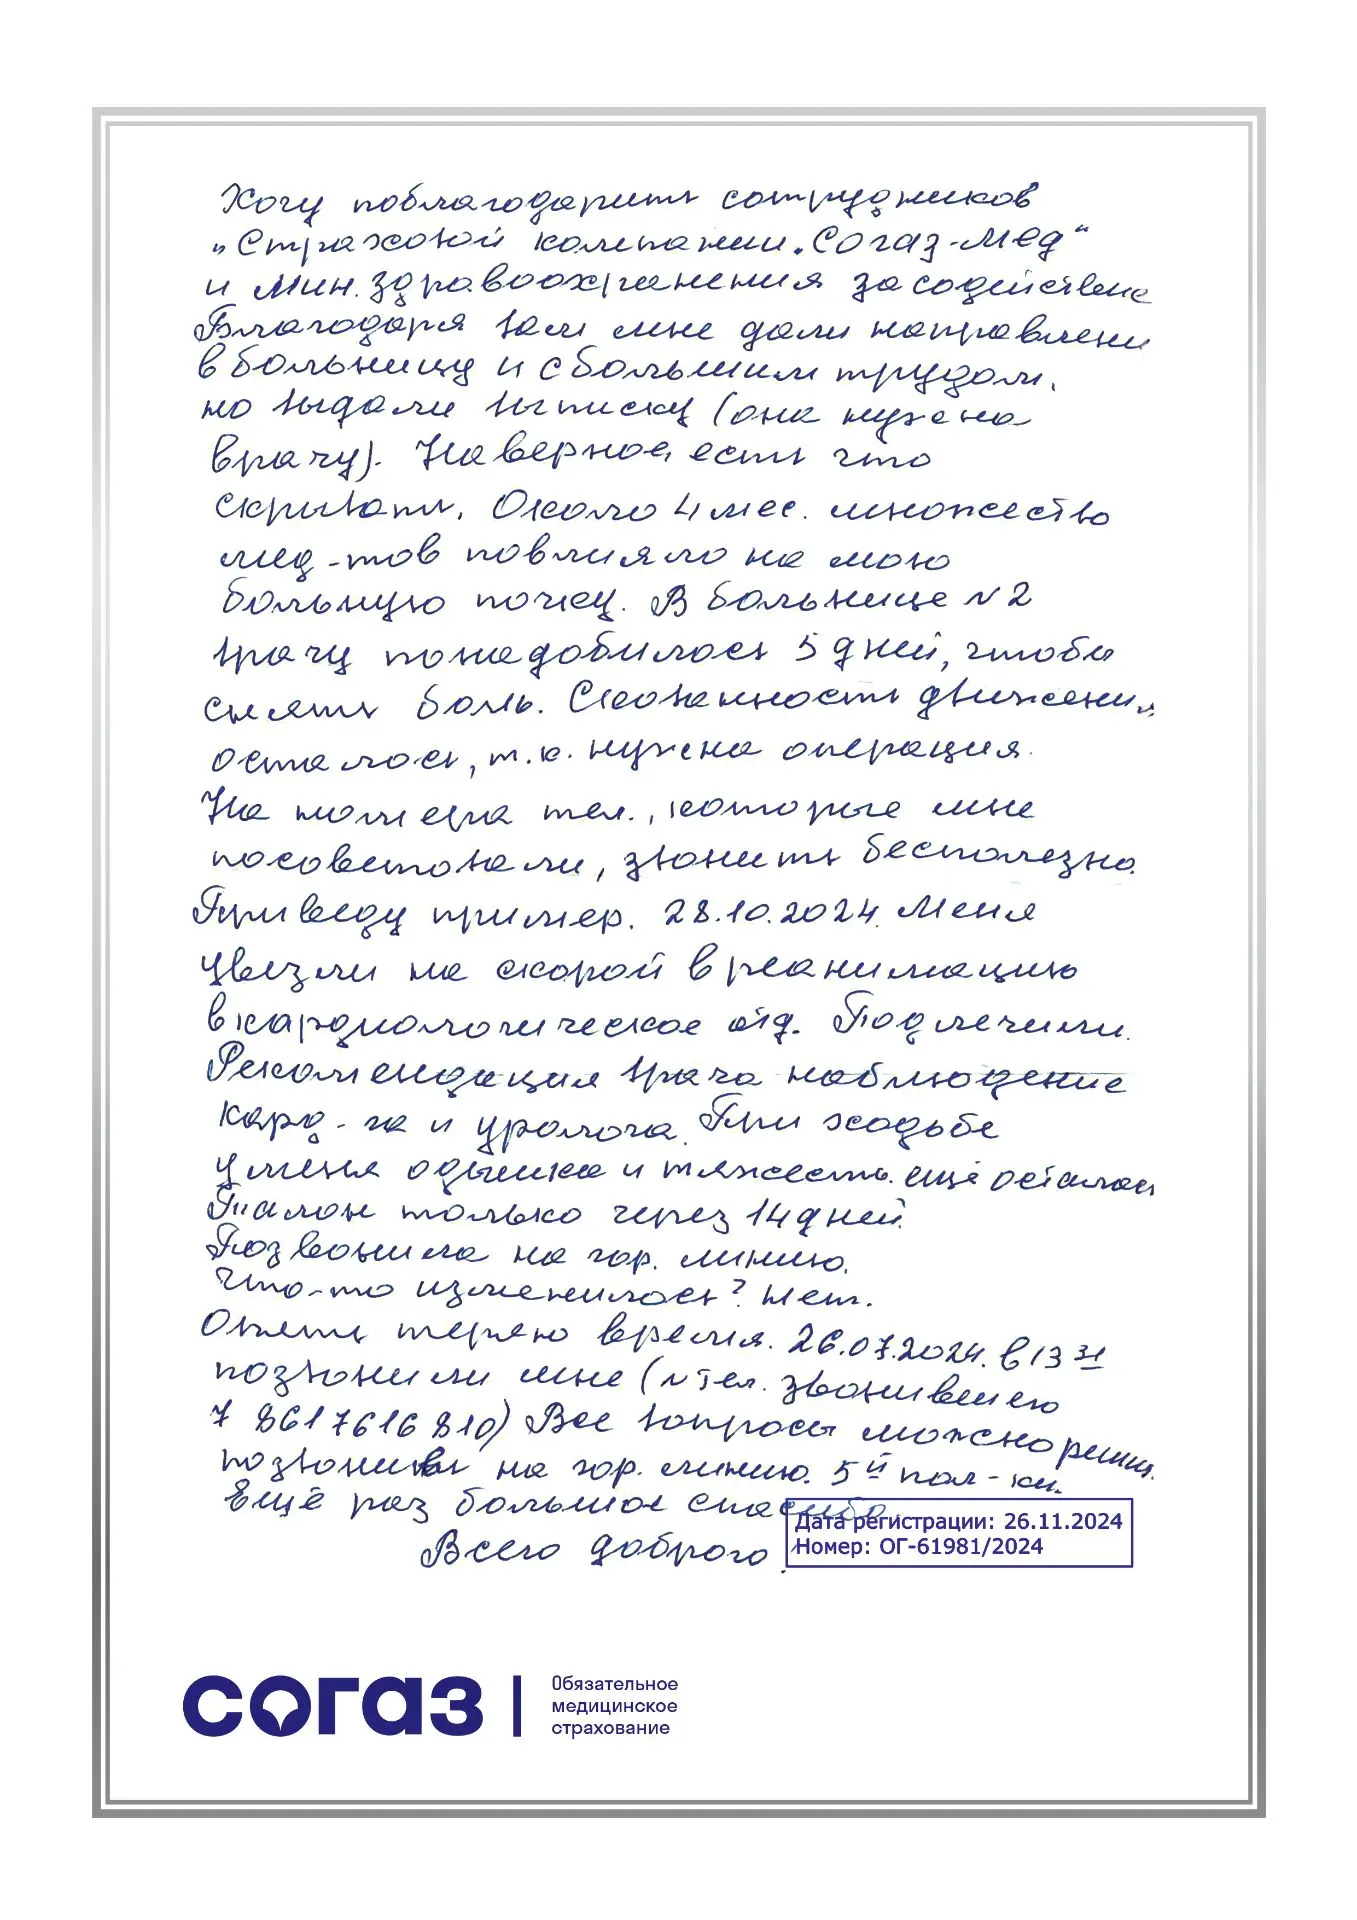 Хочу поблагодарить сотрудников
„Страховой компании „Согаз-Мед“
и Мин. здравоохранения за содействие
Благодаря Вам мне дали направлени
в больницу и с большим трудом,
но выдали выписку (она нужна
врачу). Наверное, есть что
скрывать. Около 4 мес. множество
мед-тов повлияло на мою
больную почку. В больнице N2
врачу понадобилось 5 дней, чтобы
снять боль. Скованность движения
осталось, т.к. нужна операция.
На номера тел., которые мне
посоветовали, звонить бесполезно.
Приведу пример. 28.10.2024. Меня
увезли на скорой в реанимацию
в кардиологическое отд. Подлечили.
Рекомендация врача наблюдение
кард-га и уролога. При ходьбе
у меня одышка и тяжесть ещё осталась
Талон только через 14 дней.
Позвонила на гор. линию.
Что-то изменилось? Нет.
Опять теряю время. 26.07.2024. в 13 31
позвонили мне (N тел. звонившего
7 8617616810) Все вопросы можно решить
позвонив на гор. линию. 5й пол-ки.
Ещё раз большое спасибо.
Всего доброго.
Дата регистрации: 26.11.2024
Номер: ОГ-61981/2024
согаз
Обязательное
медицинское
страхование